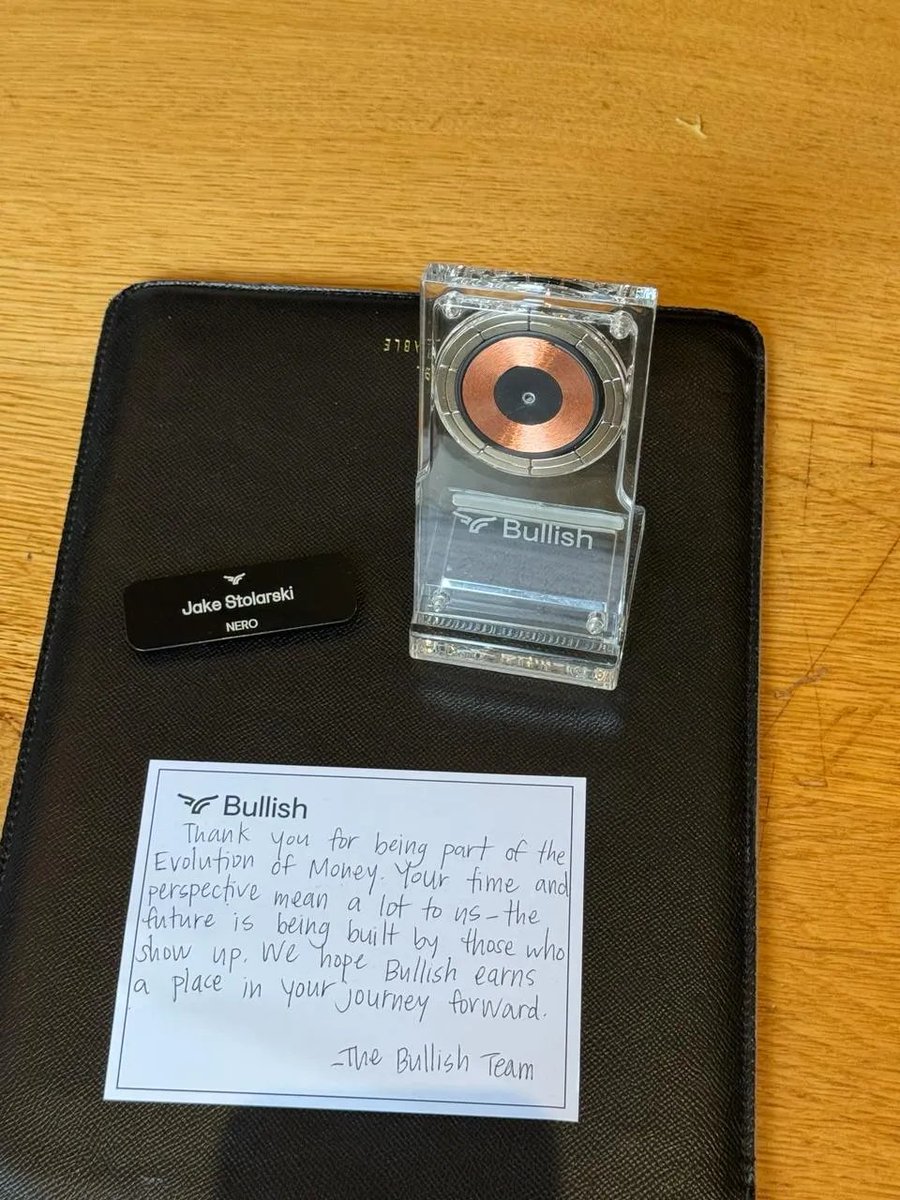 ABLE
Bullish
Jake Stolarski
NERO
Bullish
Thank you for being part of the
Evolution of Money. Your time and
perspective mean a lot to us - the
future is being built by those who
show up. We hope Bullish earns
a place in your journey forward.
-The Bullish Team